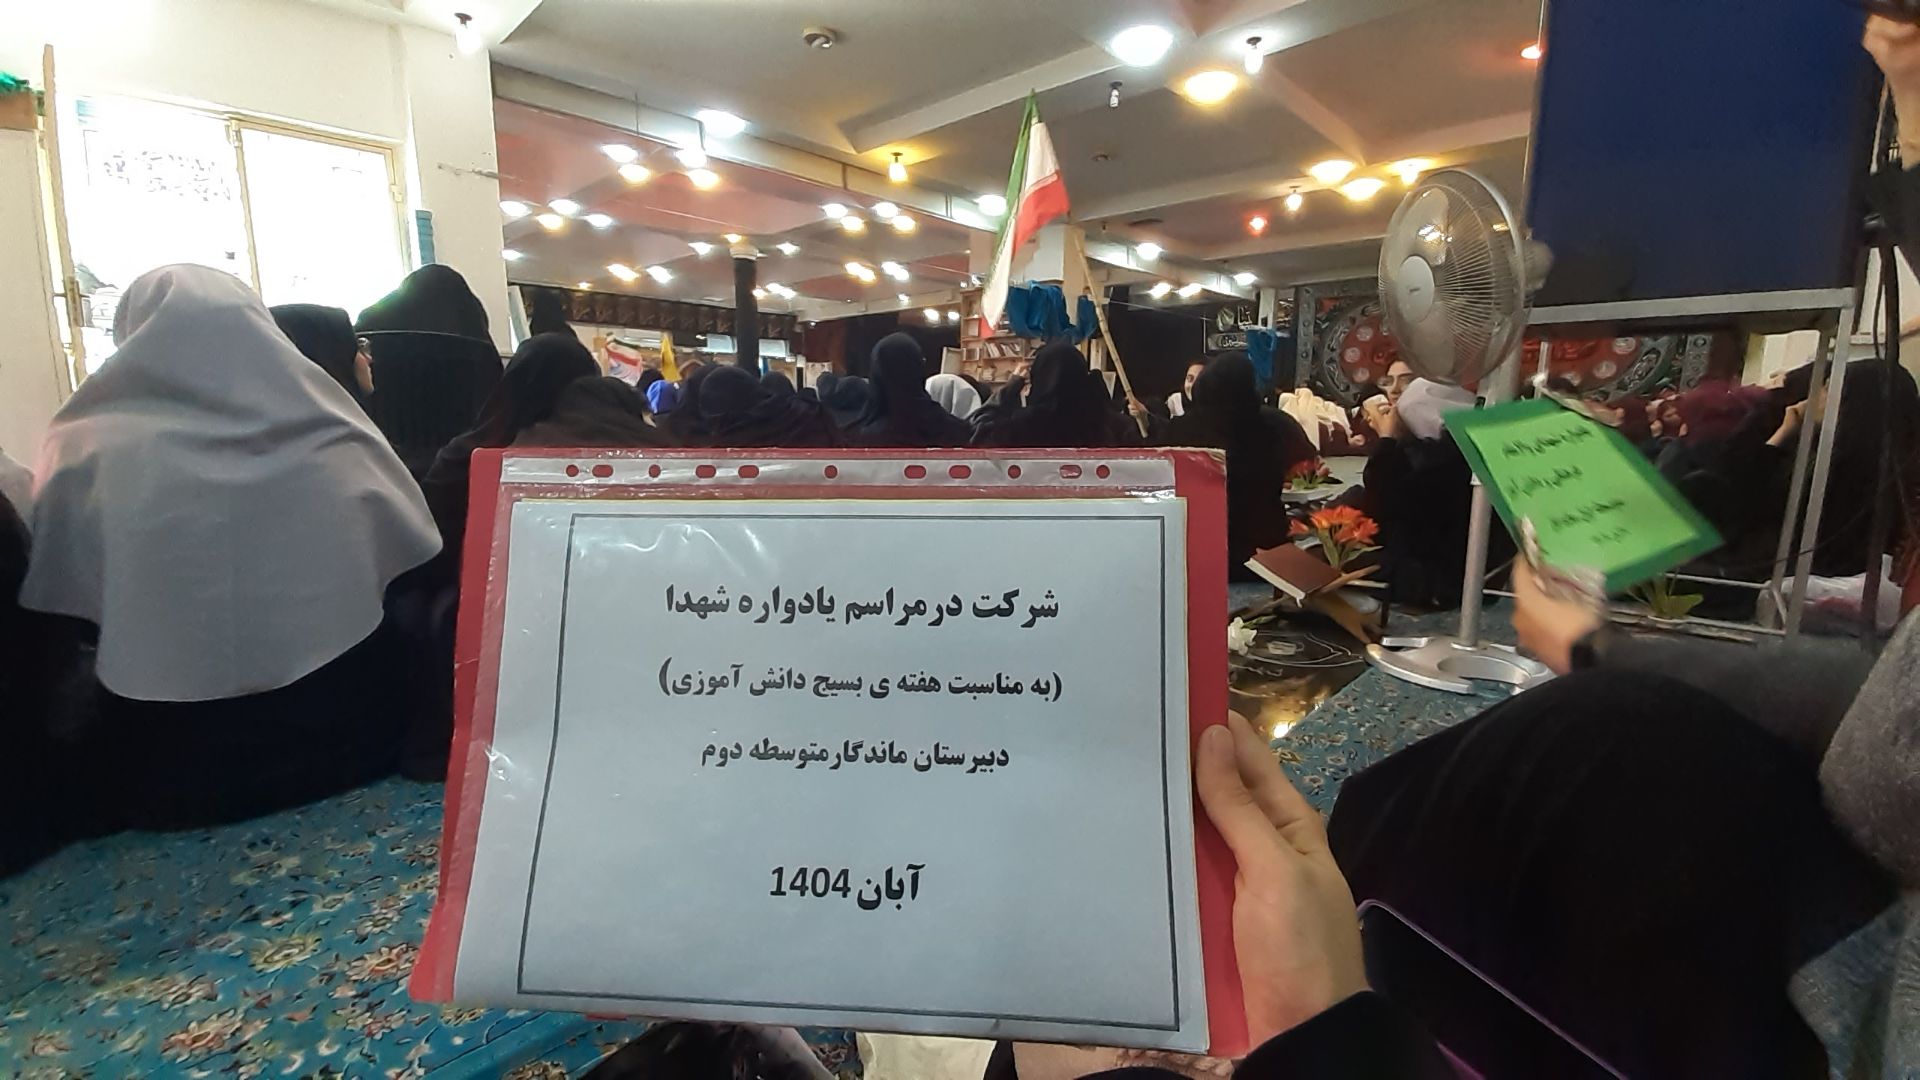 شرکت درمراسم یادواره شهدا
(به مناسبت هفته ی بسیج دانش آموزی)
دبیرستان ماندگارمتوسطه دوم
آبان 1404